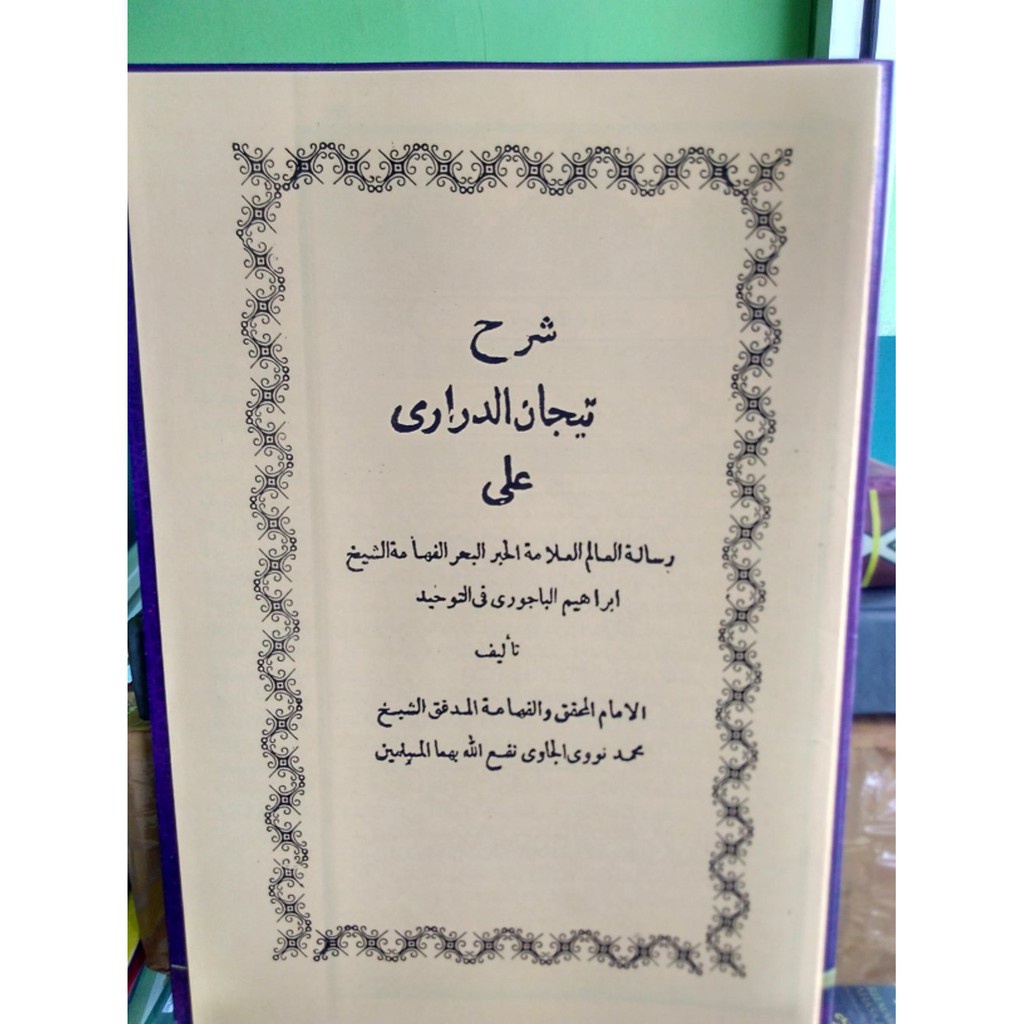 شرح
تيجان الدرارى
على
رسالة العالم العلامة الحبر البحر الفهامة الشيخ
ابراهيم الباجورى فى التوحيد
تأليف
الامام المحقق والفهامة المدقق الشيخ
محمد نووى الجاوى نفع الله بهما المسلمين